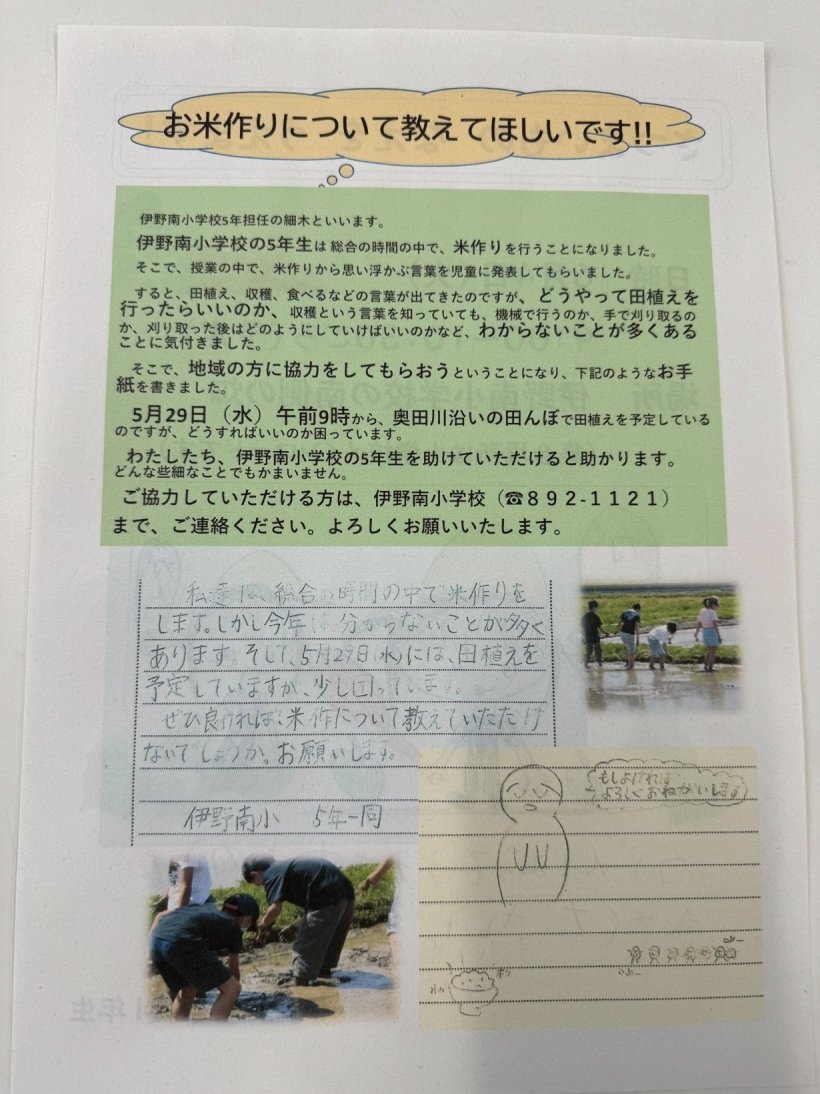 お米作りについて教えてほしいです!!
伊野南小学校5年担任の細木といいます。
伊野南小学校の5年生は 総合の時間の中で、米作りを行うことになりました。
そこで、授業の中で、米作りから思い浮かぶ言葉を児童に発表してもらいました。
すると、田植え、収穫、食べるなどの言葉が出てきたのですが、どうやって田植えを
行ったらいいのか、収穫という言葉を知っていても、機械で行うのか、手で刈り取るの
か、刈り取った後はどのようにしていけばいいのかなど、わからないことが多くある
ことに気付きました。
そこで、地域の方に協力をしてもらおうということになり、下記のようなお手
紙を書きました。
5月29日（水）午前9時から、奥田川沿いの田んぼで田植えを予定している
のですが、どうすればいいのか困っています。
わたしたち、伊野南小学校の5年生を助けていただけると助かります。
どんな些細なことでもかまいません。
ご協力していただける方は、伊野南小学校（☎８９２-１１２１）
まで、ご連絡ください。よろしくお願いいたします。
私達は、総合の時間の中で米作りを
します。しかし今年は、分からないことが多く
あります。そして、5月29日(水)には、田植えを
予定していますが、少し困っています。
ぜひ良ければ、米作について教えていただけ
ないでしょうか。お願いします。
伊野南小 5年一同
もしよければ
よろしくおねがいします
年生